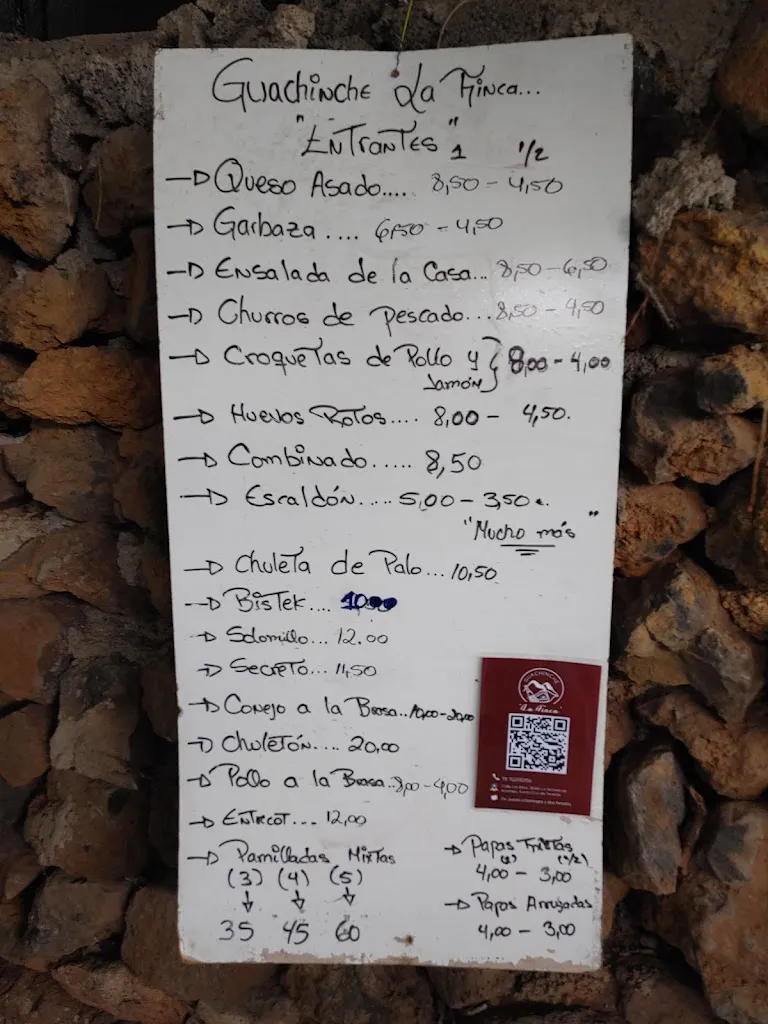 Guachinche La Finca...
"Entrantes" 1 1/2
→ Queso Asado.... 8,50 - 4,50
→ Garbaza .... 6,50 - 4,50
→ Ensalada de la Casa... 8,50 - 6,50
→ Churros de Pescado... 8,50 - 4,50
→ Croquetas de Pollo y } 8,00 - 4,00
Jamón
→ Huevos Rotos.... 8,00 - 4,50.
→ Combinado..... 8,50
→ Escaldón.... 5,00 - 3,50 €.
"Mucho más"
→ Chuleta de Palo... 10,50
→ Bistek....
→ Solomillo... 12.00
→ Secreto... 11,50
→ Conejo a la Brasa.. 10,00 - 20,00
→ Chuletón.... 20,00
→ Pollo a la Brasa.. 8,00 - 4,00
→ Entrecot.... 12,00
→ Parrilladas Mixtas
(3) (4) (5)
35 45 60
→ Papas Fritas
(1) (1/2)
4,00 - 3,00
→ Papas Arrugadas
4,00 - 3,00
GUACHINCHE
"La Finca"